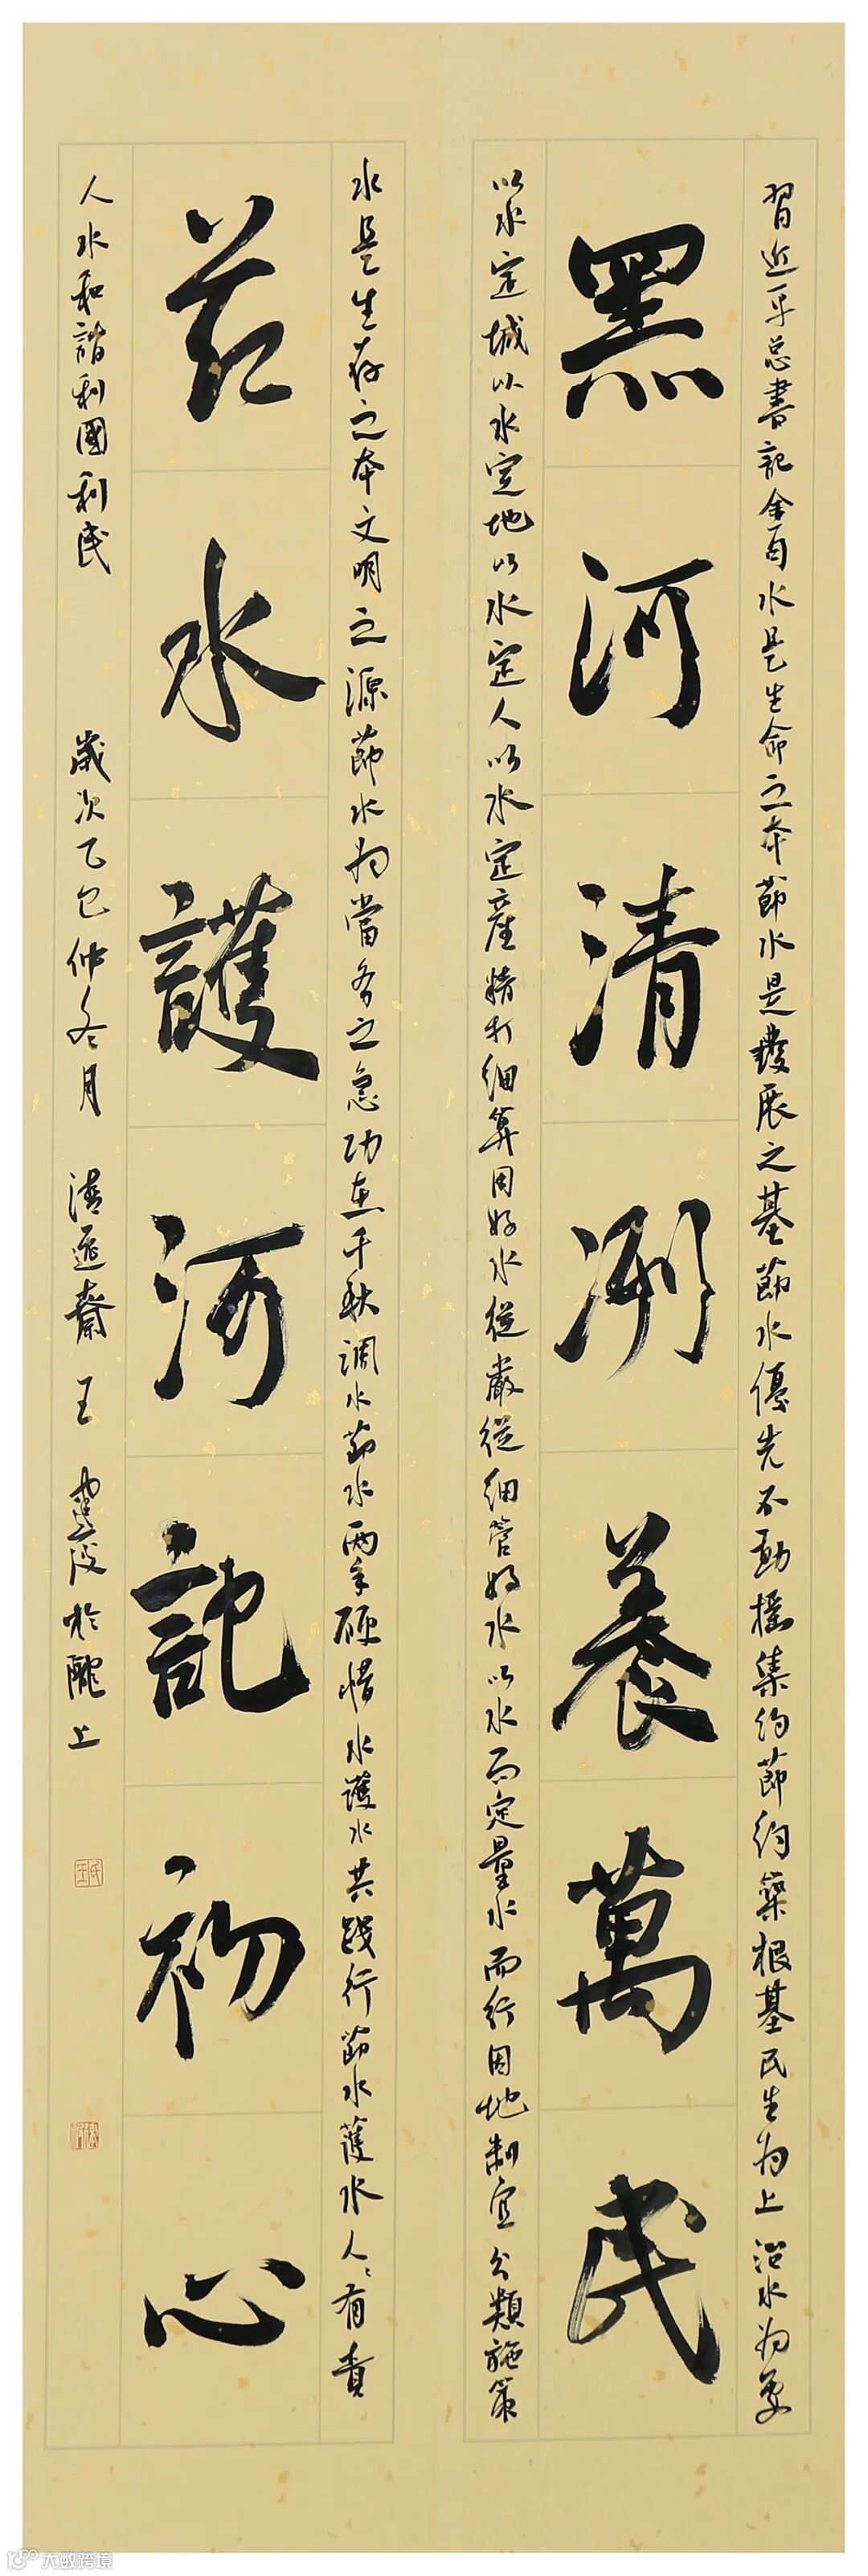 習近平总書記金句水是生命之本節水是發展之基節水優先不動摇集约節約築根基民生为上治水为要
黑河清冽養萬民
以水定城以水定地以水定人以水定產精打细算用好水從嚴從细管好水以水而定量水而行因地制宜分類施策
水是生存之本文明之源節水为當务之急功在千秋調水節水兩手硬惜水護水共践行節水護水人人有責
兹水護河記初心
人水和諧利國利民 歲次乙巳仲冬月 清遠齋 王 建设於隴上
大数跨境